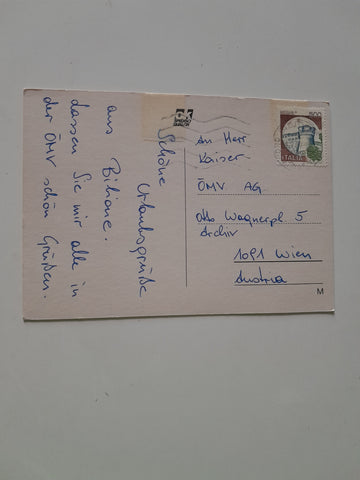 Schöne
Urlaubsgrüße
aus Bibione.
Lassen Sie mir alle in
der ÖMV schön Grüßen.
An Herr
Kaiser
ÖMV AG
Otto Wagnerpl. 5
Archiv
1091 Wien
Austria
500
ITALIA
M